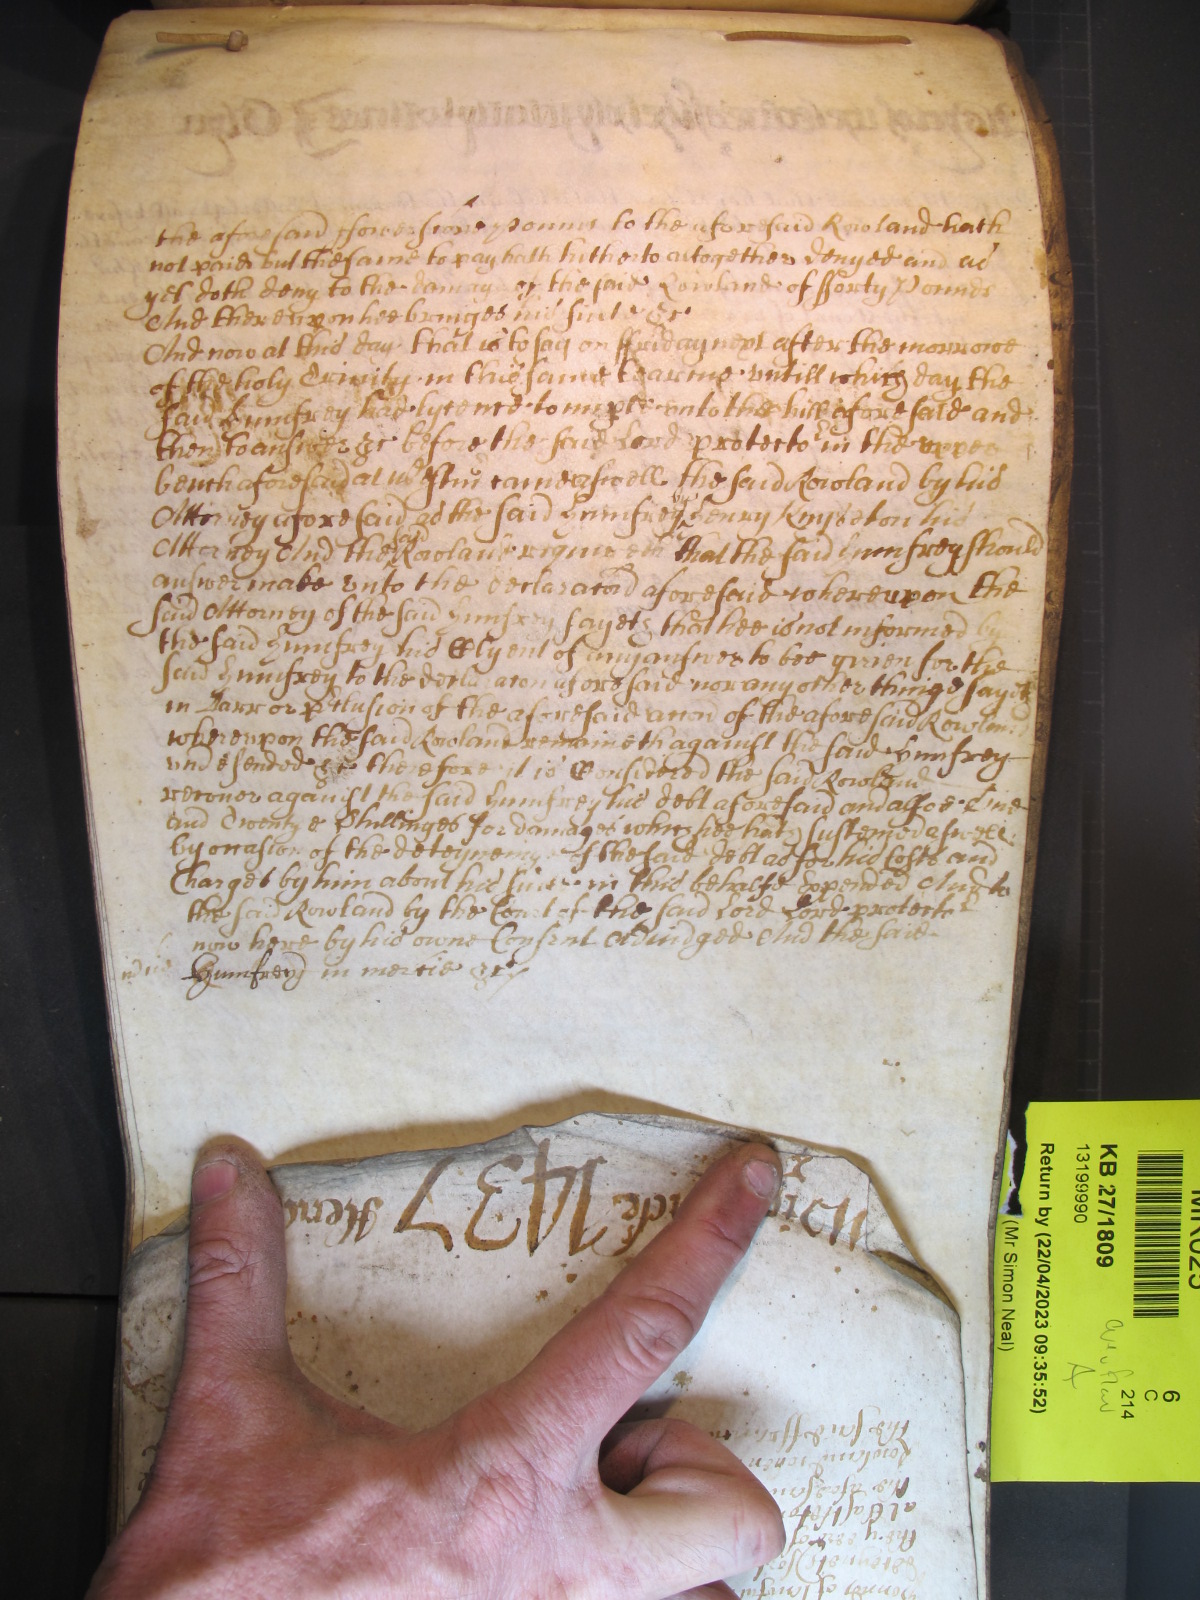 the aforesaid ffowerscore pounds to the aforesaid Rowland hath
not paid but the same to pay hath hitherto altogether denyed and as
yet doth deny to the damage of the said Rowland of fforty Pounds
And thereupon hee bringes his suite &c
And now at this day that is to say on ffriday next after the morrowe
of the holy Trinity in this same tearme untill which day the
said Humfrey had lycence to imparle unto the bill aforesaid and
then to answer &c before the said Lord protector in the upper
bench aforesaid at Westmr came aswell the said Rowland by his
Attorney aforesaid as the said Humfrey by Henry Kinaston his
Attorney And the said Rowland requireth that the said Humfrey should
answer make unto the declaracon aforesaid whereupon the
said Attorney of the said Humfrey sayeth that hee is not informed by
the said Humfrey his Clyent of any answer to bee given for the
said Humfrey to the declaracon aforesaid nor any other thinge sayeth
in Barr or p'clusion of the aforesaid accon of the aforesaid Rowland
whereupon the said Rowland remaineth against the said Humfrey
undefended &c therefore it is Considered the said Rowland
recover against the said Humfrey his debt aforesaid and alsoe One
and Twenty Shillinges for damages which hee hath susteined aswell
by occasion of the deteyneing of the said debt as for his Costs and
Charges by him about his suite in this behalfe Expended And to
the said Rowland by the Court of the said Lord Lord protector
now here by his owne Consent Adiudged And the said
Humfrey in mercie &c
1437
KB 27/1809
13199990
Return by (22/04/2023 09:35:52)
(Mr Simon Neal)
6
C
214